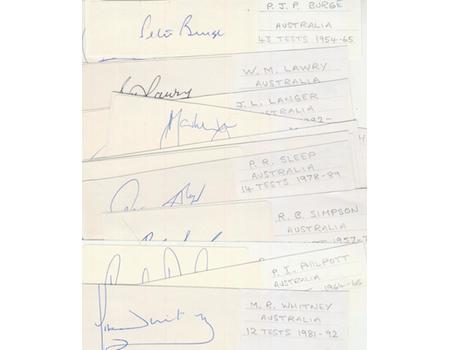 Peter Burge
P.J.P. BURGE
AUSTRALIA
43 TESTS 1954-65
W.M. LAWRY
AUSTRALIA
Lawry
J.L. LANGER
AUSTRALIA
1992-
P.R. SLEEP
AUSTRALIA
14 TESTS 1978-89
R.B. SIMPSON
AUSTRALIA
1957-7
P.I. PHILPOTT
AUSTRALIA
1964-65
M.R. WHITNEY
AUSTRALIA
12 TESTS 1981-92
Whitney